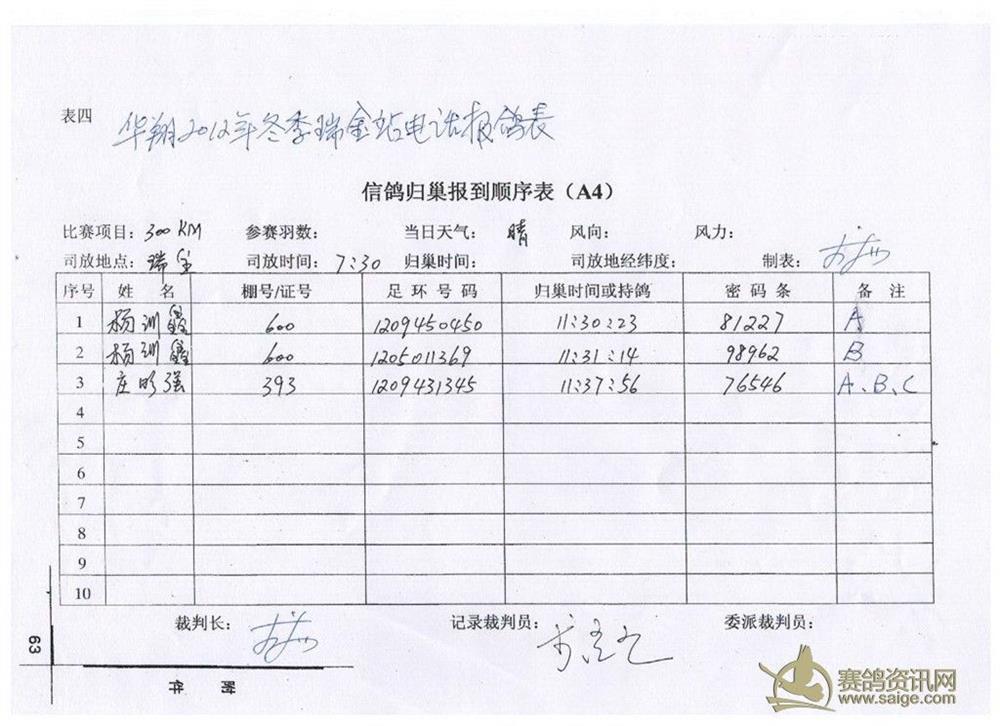 表四
华翔2012年冬季瑞金站电话报鸽表
信鸽归巢报到顺序表（A4）
比赛项目：300KM 参赛羽数： 当日天气：晴 风向： 风力：
司放地点：瑞金 司放时间：7:30 归巢时间： 司放地经纬度： 制表：
序号 姓 名 棚号/证号 足 环 号 码 归巢时间或持鸽 密 码 条 备 注
1 杨训鑫 600 1209450450 11:30:23 81227 A
2 杨训鑫 600 1205011369 11:31:14 98962 B
3 庄明强 393 1209431345 11:37:56 76546 A、B、C
4
5
6
7
8
9
10
裁判长： 记录裁判员： 委派裁判员：
63
附 件
赛鸽资讯网
www.saige.com